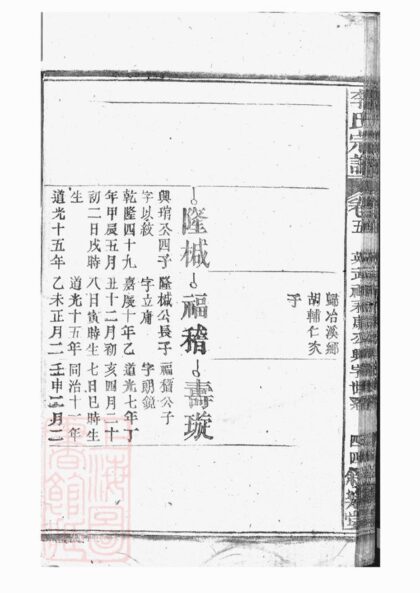 李氏宗譜
卷五
四四
歸冶溪鄉
胡輔仁次
子
隆棫
福稽
壽璇
興琄公四子
隆棫公長子
福稽公子
字以紋
字立庸
字朗鏡
乾隆四十九
嘉慶十年乙
道光七年丁
年甲辰五月
丑十二月初
亥四月二十
初二日戌時
八日寅時生
七日巳時生
生
道光十五年
同治十一年
道光十五年
乙未正月二
壬申二月二